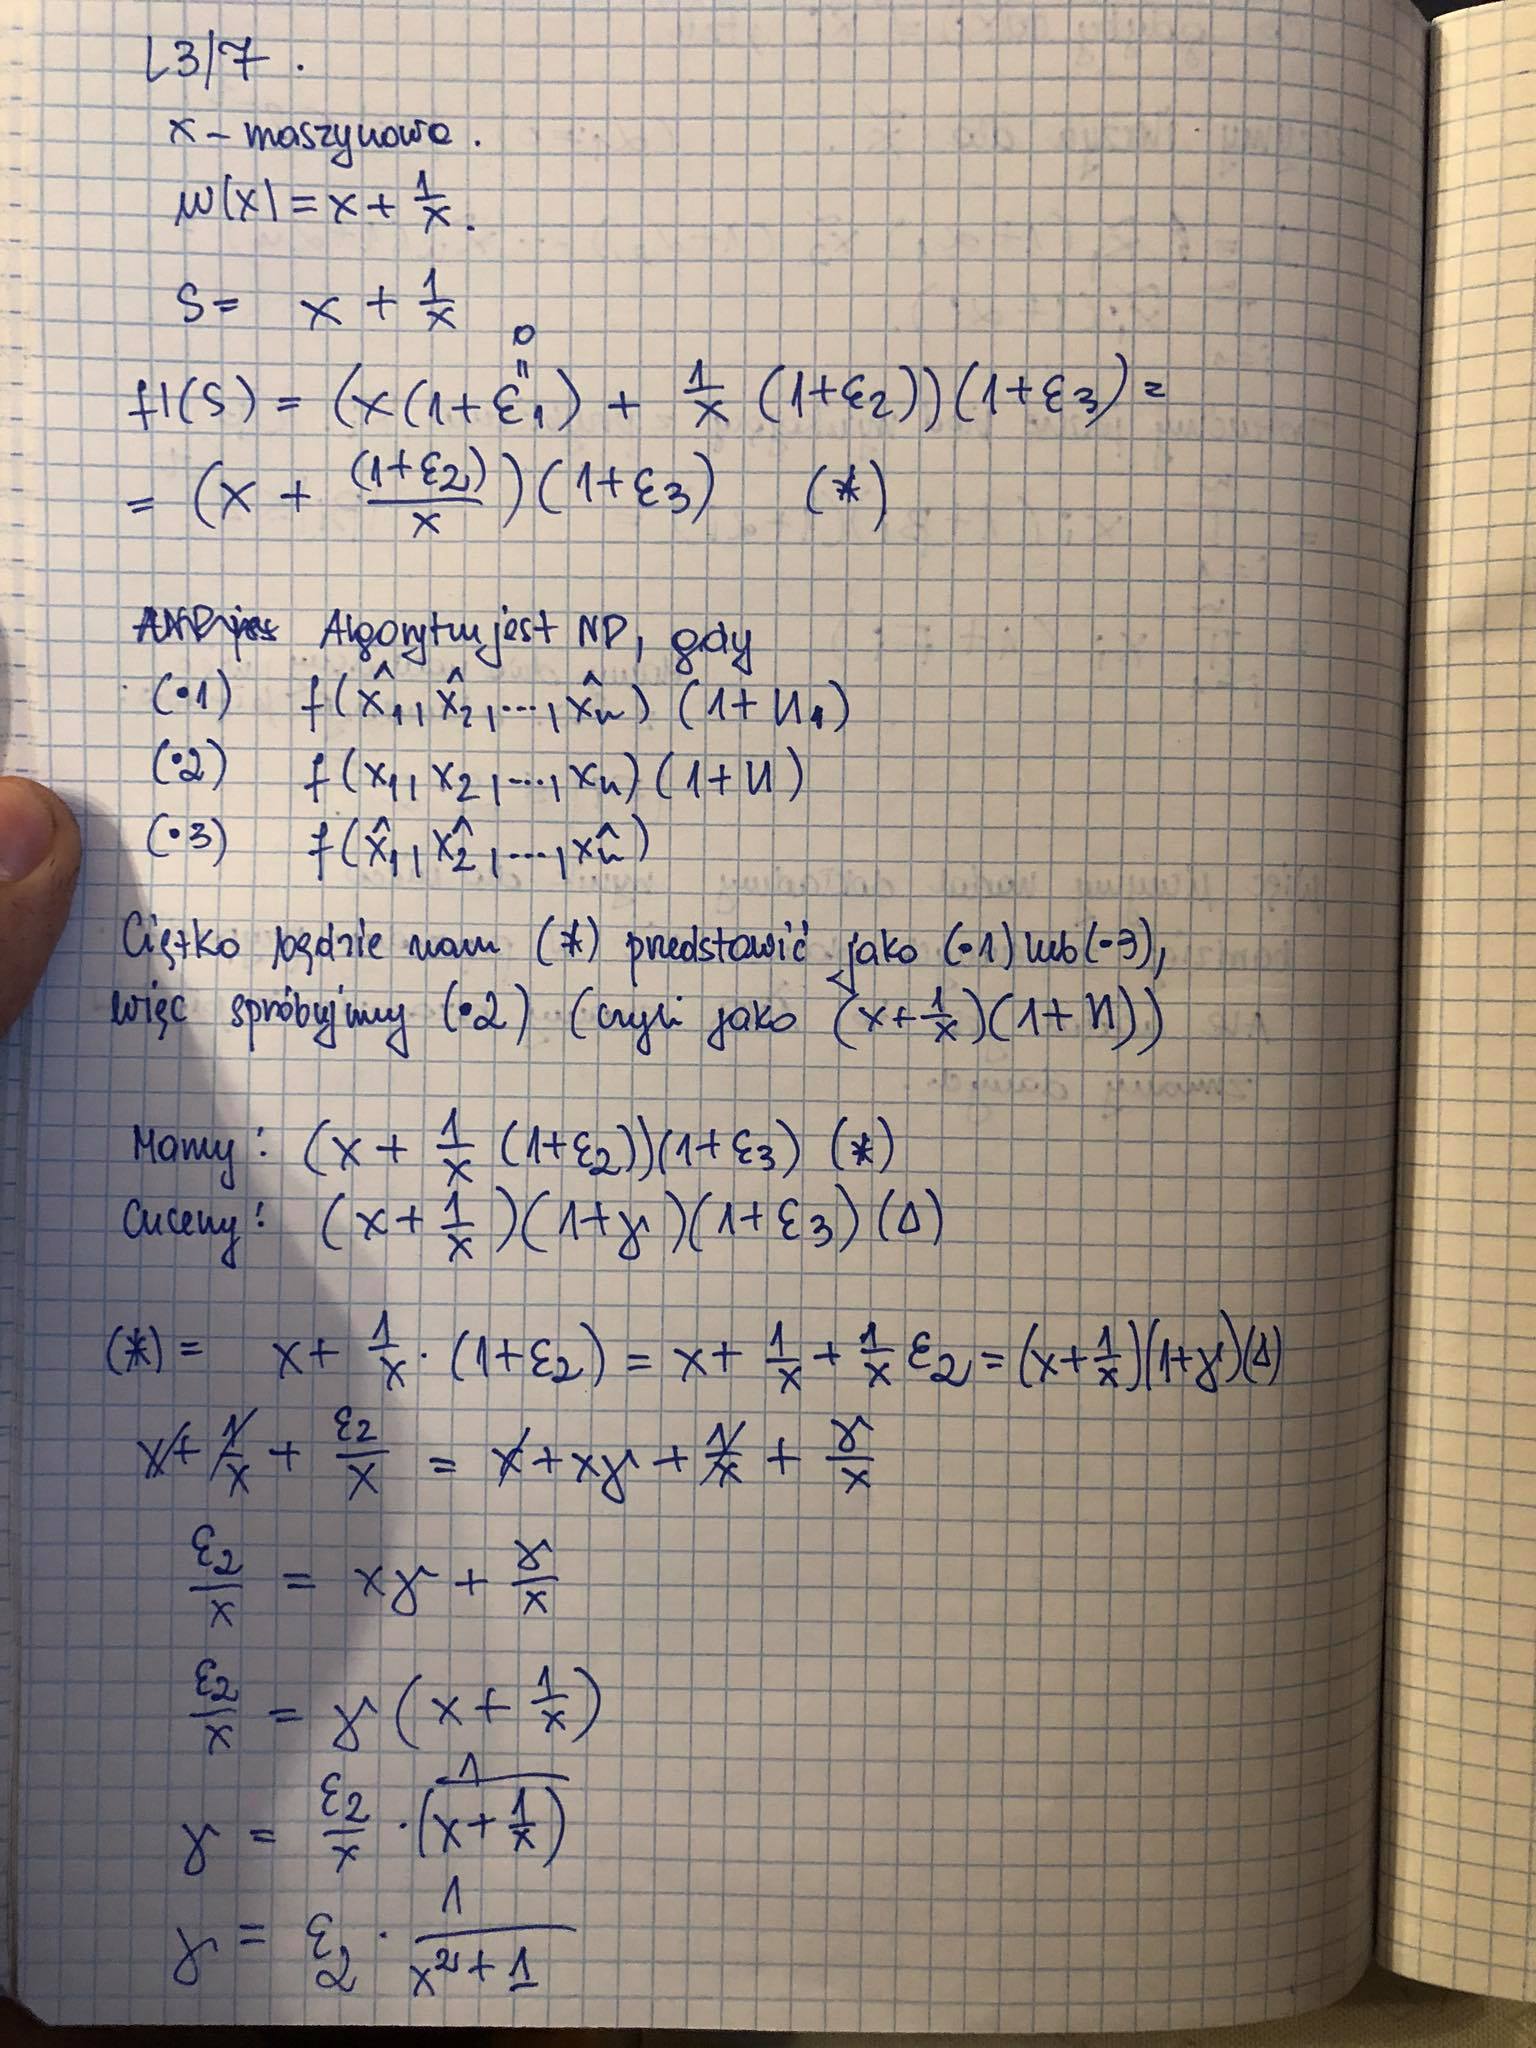 L3/7.
x - maszynowe.
w(x) = x + 1/x.
S = x + 1/x
0
fl(S) = (x(1+ε₁) + 1/x (1+ε₂))(1+ε₃) =
= (x + (1+ε₂)/x)(1+ε₃) (*)
Algorytm jest NP, gdy
(•1) f(x̂₁, x̂₂, ..., x̂ₙ)(1+η₁)
(•2) f(x₁, x₂, ..., xₙ)(1+η)
(•3) f(x̂₁, x̂₂, ..., x̂ₙ)
Ciężko będzie nam (*) przedstawić jako (•1) lub (•3),
więc spróbujmy (•2) (czyli jako (x + 1/x)(1+η))
Mamy: (x + 1/x (1+ε₂))(1+ε₃) (*)
Chcemy: (x + 1/x)(1+γ)(1+ε₃) (Δ)
(*) = x + 1/x · (1+ε₂) = x + 1/x + 1/x ε₂ = (x + 1/x)(1+γ)(Δ)
x + 1/x + ε₂/x = x + xγ + 1/x + γ/x
ε₂/x = xγ + γ/x
ε₂/x = γ(x + 1/x)
γ = ε₂/x · 1/(x + 1/x)
γ = ε₂ · 1/(x² + 1)